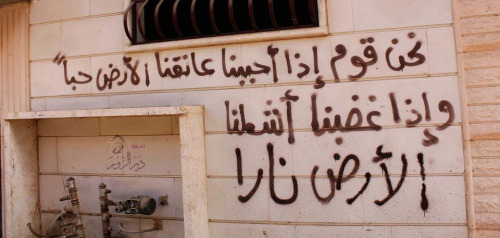 نحن قوم إذا أحببنا عانقنا الأرض حباً
وإذا غضبنا أشعلنا
الأرض نارا